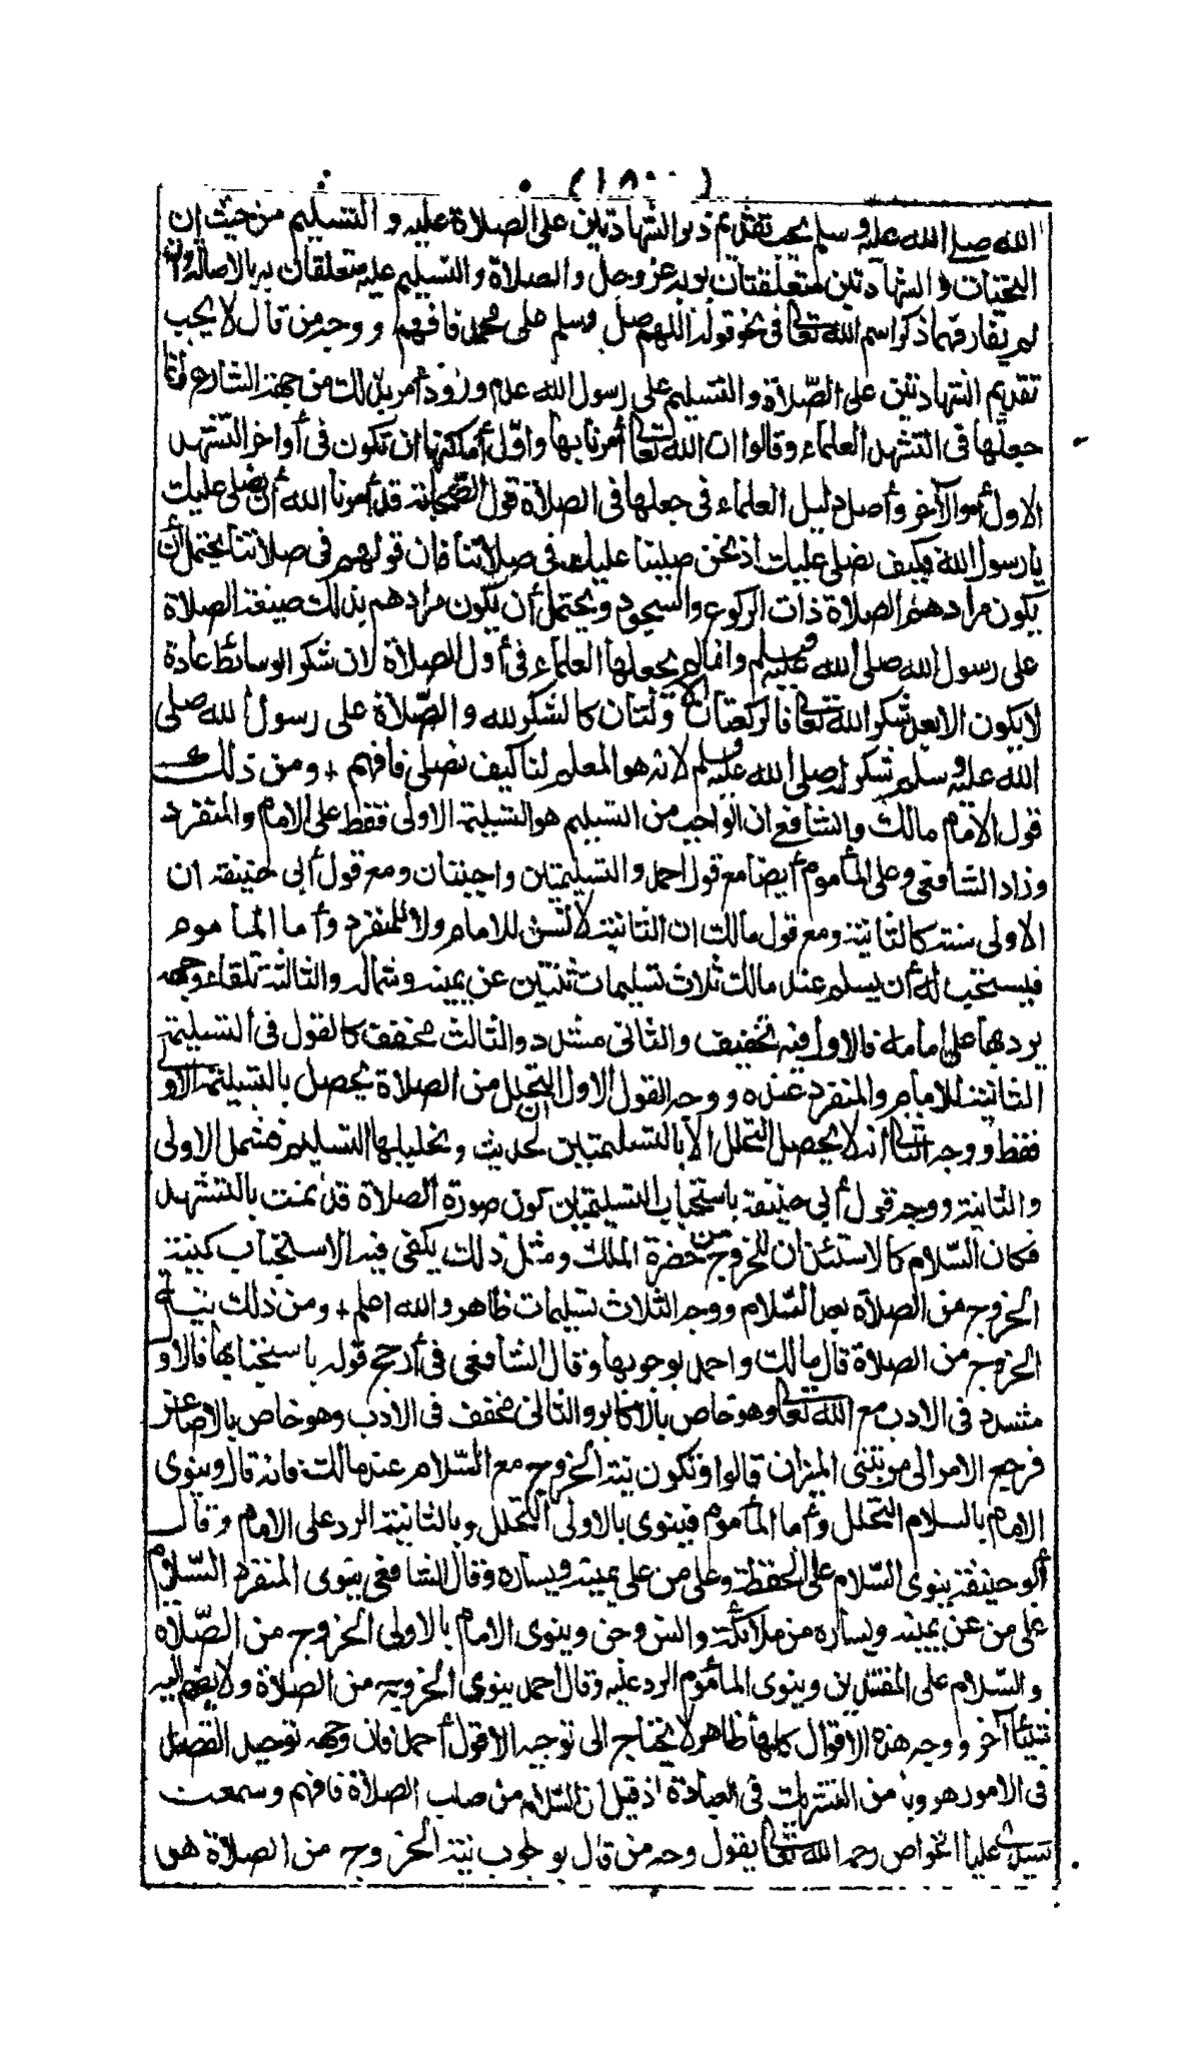 (١٨٠)
الله صلى الله عليه وسلم يجب تقديم ذكر الشهادتين على الصلاة عليه والتسليم من حيث ان
التحيات والشهادتين متعلقتان بربه عز وجل والصلاة والتسليم عليه متعلقان به بالاصالة وان
لم يفارقهما ذكر اسم الله تعالى في نحو قوله اللهم صل وسلم على محمد فافهم ووجه من قال لا يجب
تقديم الشهادتين على الصلاة والتسليم على رسول الله عدم ورود أمر بذلك من جهة الشارع وانما
جعلها في التشهد العلماء وقالوا ان الله تعالى أمرنا بها وأولى أمكنتها ان تكون في أواخر التشهد
الاول أو الآخر وأصل دليل العلماء في جعلها في الصلاة قول الصحابة قد أمرنا الله أن نصلى عليك
يا رسول الله فكيف نصلى عليك اذ نحن صلينا عليك في صلاتنا فان قولهم في صلاتنا يحتمل أن
يكون مرادهم الصلاة ذات الركوع والسجود ويحتمل أن يكون مرادهم بذلك صيغة الصلاة
على رسول الله صلى الله عليه وسلم وانما لم يجعلها العلماء في أول الصلاة لان شكر الوسائط عادة
لا يكون الا بعد شكر الله تعالى فالركعتان الاولتان كالشكر لله والصلاة على رسول الله صلى
الله عليه وسلم شكر له صلى الله عليه وسلم لانه هو المعلم لنا كيف نصلى فافهم + ومن ذلك
قول الامام مالك والشافعى ان الواجب من التسليم هو التسليمة الاولى فقط على الامام والمنفرد
وزاد الشافعى وعلى المأموم أيضا مع قول احمد والتسليمتين واجبتان ومع قول أبى حنيفة ان
الاولى سنة كالثانية ومع قول مالك ان الثانية لا تسن للامام ولا للمنفرد وأما المأموم
فيستحب له أن يسلم عند مالك ثلاث تسليمات ثنتين عن يمينه وشماله والثالثة تلقاء وجهه
يردها على امامه فالاول فيه تخفيف والثانى مشدد والثالث مخفف كالقول في التسليمة
الثانية للامام والمنفرد عنده ووجه القول الاول ان التحلل من الصلاة يحصل بالتسليمة الاولى
فقط ووجه الثانى انه لا يحصل التحلل الا بالتسليمتين لحديث وتحليلها التسليم فشمل الاولى
والثانية ووجه قول أبى حنيفة باستحباب التسليمتين كون صورة الصلاة قد تمت بالتشهد
فكان السلام كالاستئذان للخروج من حضرة الملك ومثل ذلك يكفى فيه الاستحباب كنية
الخروج من الصلاة بعد السلام ووجه الثلاث تسليمات ظاهر والله اعلم + ومن ذلك نية
الخروج من الصلاة قال مالك واحمد بوجوبها وقال الشافعى في أرجح قوله باستحبابها فالاول
مشدد في الادب مع الله تعالى وهو خاص بالاكابر والثانى مخفف في الادب وهو خاص بالاصاغر
فرجع الامر الى مرتبتى الميزان قالوا وتكون نية الخروج مع السلام عند مالك فانه قال وينوى
الامام بالسلام التحلل وأما المأموم فينوى بالاولى التحلل وبالثانية الرد على الامام وقال
أبو حنيفة ينوى السلام على الحفظة وعلى من على يمينه ويساره وقال الشافعى ينوى المنفرد السلام
على من عن يمينه ويساره من ملائكة وانس وجن وينوى الامام بالاولى الخروج من الصلاة
والسلام على المقتدين وينوى المأموم الرد عليه وقال احمد ينوى الخروج من الصلاة ولا يضم اليه
شيئا آخر ووجه هذه الاقوال كلها ظاهر لا يحتاج الى توجيه الا قول أحمد فان وجهه توحيد القصد
في الامور هروبا من التشريك في العبادة اذ قيل ان السلام من صلب الصلاة فافهم وسمعت
سيدى عليا الخواص رحمه الله تعالى يقول وجه من قال بوجوب نية الخروج من الصلاة هى